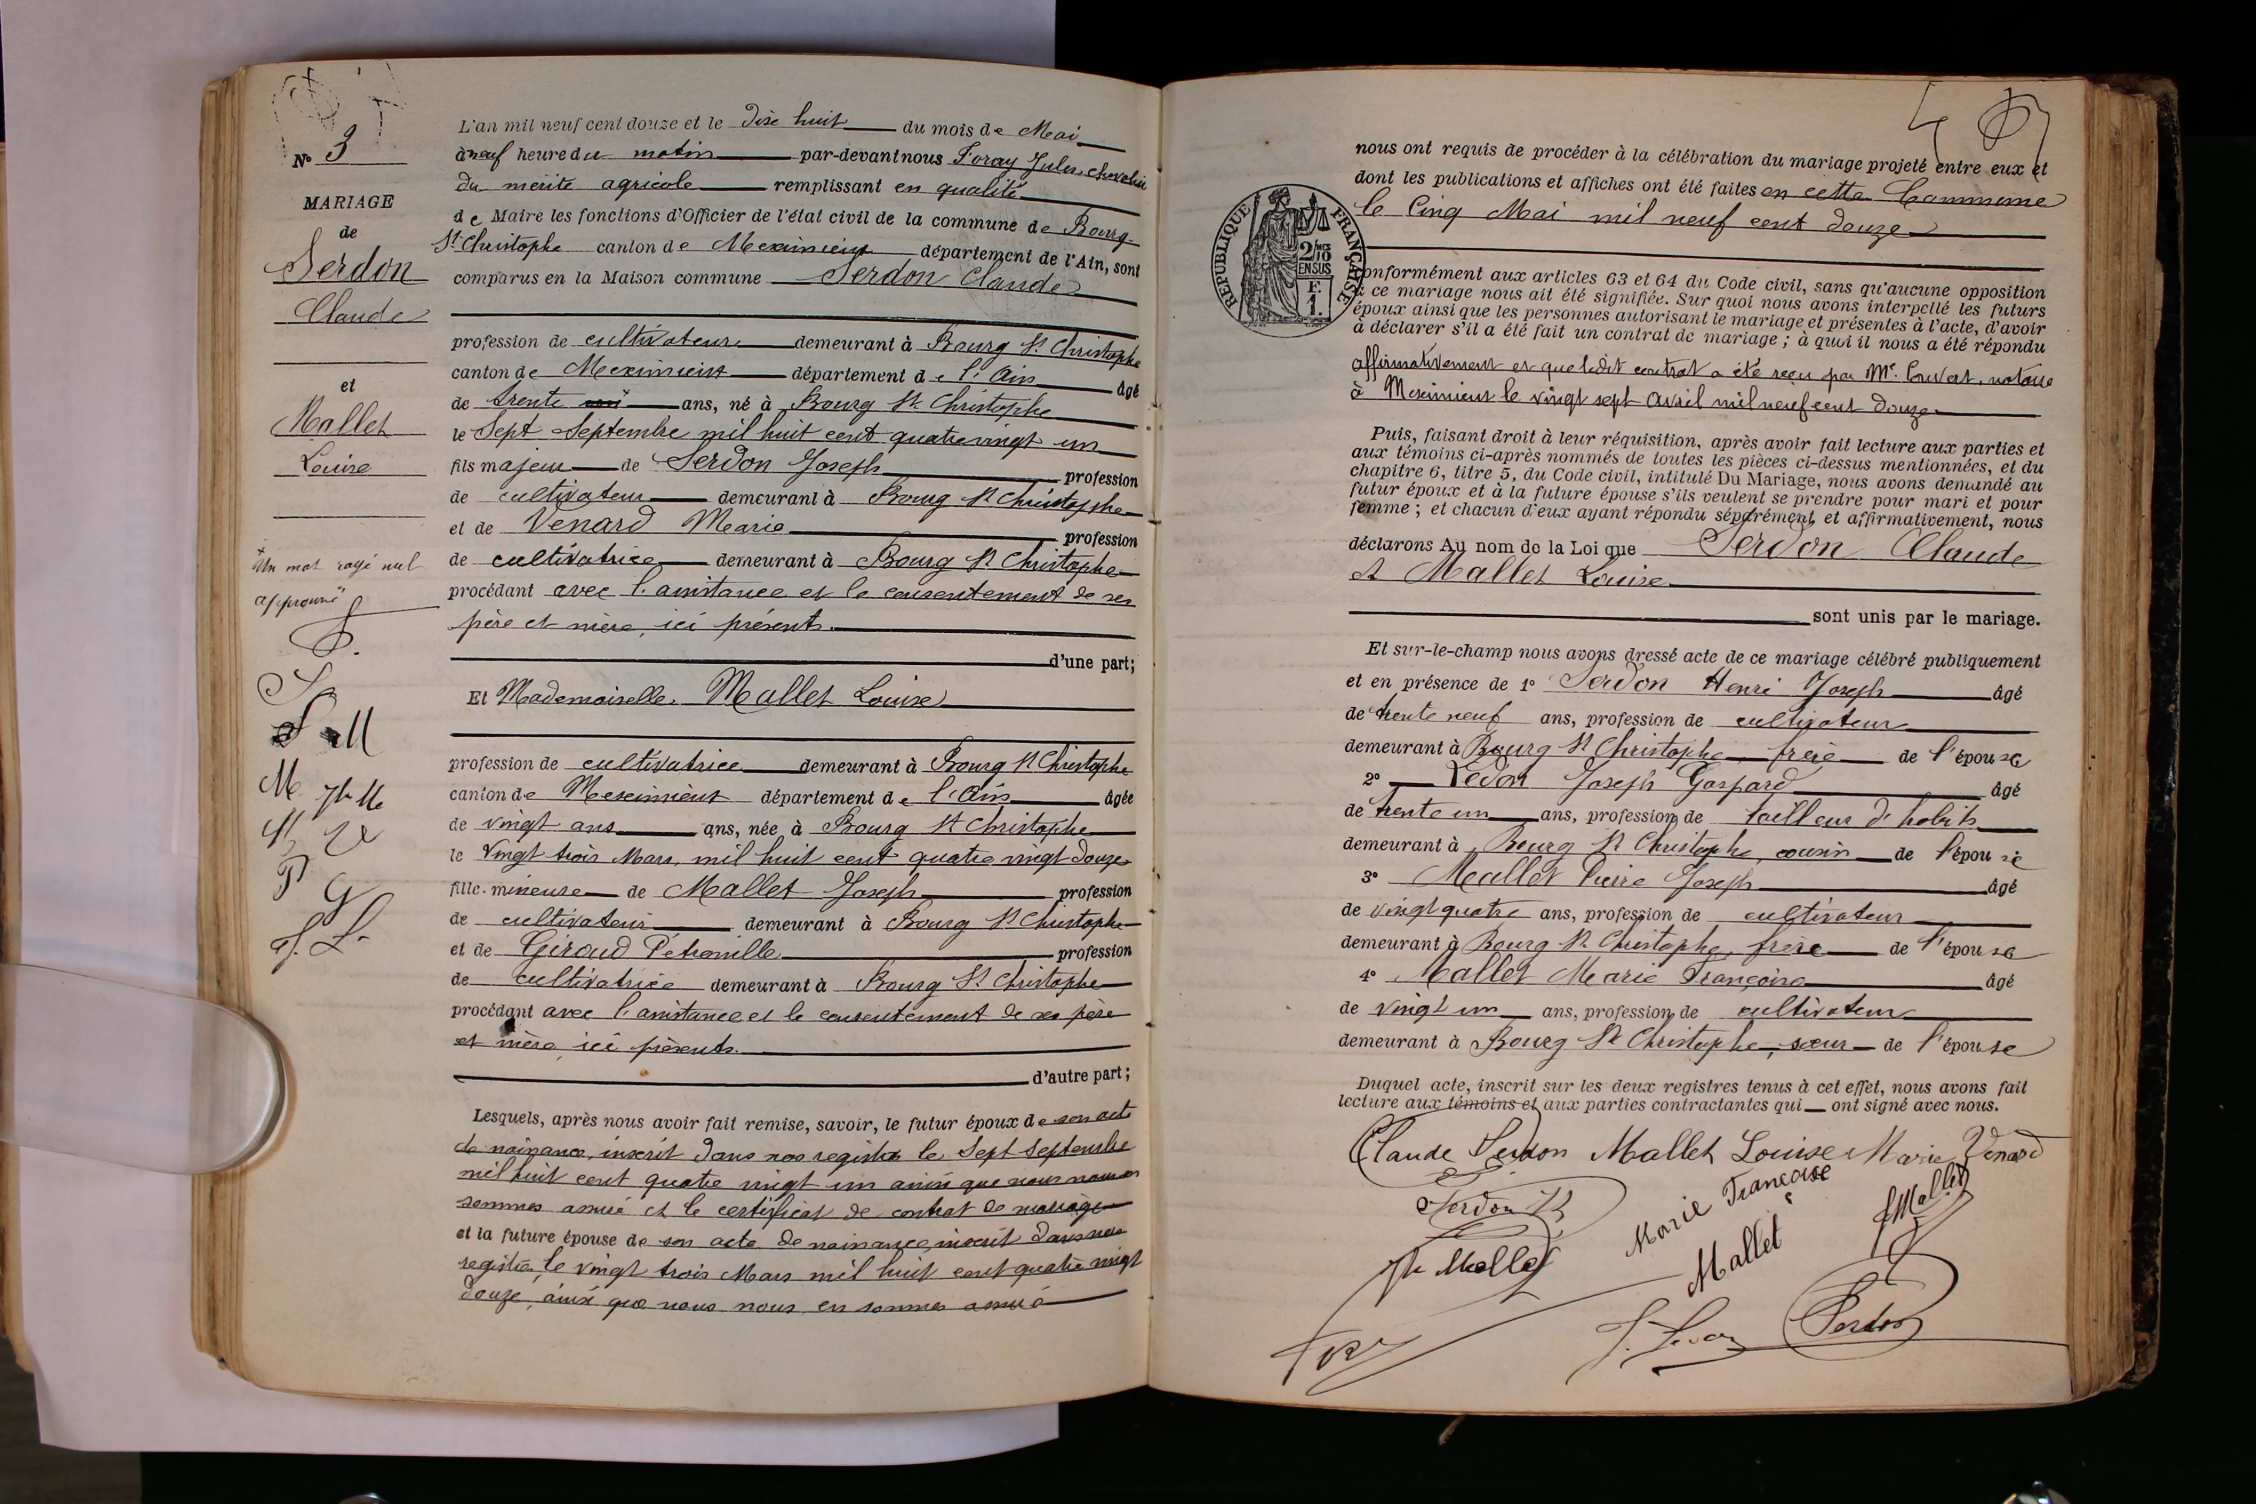 Nº 3
MARIAGE
de
Serdon
Claude
et
Mallet
Louise
Un mot rayé nul
approuvé
L'an mil neuf cent douze et le dix huit du mois de Mai
à neuf heure du matin par-devant nous Foray Jules, chevalier
du mérite agricole remplissant en qualité
de Maire les fonctions d'Officier de l'état civil de la commune de Bourg-
St Christophe canton de Meximieux département de l'Ain, sont
comparus en la Maison commune Serdon Claude
profession de cultivateur demeurant à Bourg St Christophe
canton de Meximieux département de l'Ain âgé
de trente ans, né à Bourg St Christophe
le Sept Septembre mil huit cent quatre vingt un
fils majeur de Serdon Joseph profession
de cultivateur demeurant à Bourg St Christophe
et de Venard Marie profession
de cultivatrice demeurant à Bourg St Christophe
procédant avec l'assistance et le consentement de ses
père et mère, ici présents.
d'une part;
Et Mademoiselle Mallet Louise
profession de cultivatrice demeurant à Bourg St Christophe
canton de Meximieux département de l'Ain âgée
de vingt ans ans, née à Bourg St Christophe
le Vingt trois Mars, mil huit cent quatre vingt douze
fille mineure de Mallet Joseph profession
de cultivateur demeurant à Bourg St Christophe
et de Giroud Pétronille profession
de cultivatrice demeurant à Bourg St Christophe
procédant avec l'assistance et le consentement de ses père
et mère, ici présents.
d'autre part;
Lesquels, après nous avoir fait remise, savoir, le futur époux de son acte
de naissance, inscrit dans nos registres le Sept Septembre
mil huit cent quatre vingt un ainsi que nous nous en
sommes assuré et le certificat de contrat de mariage
et la future épouse de son acte de naissance, inscrit dans nos
registres le vingt trois Mars mil huit cent quatre vingt
douze, ainsi que nous nous en sommes assuré
nous ont requis de procéder à la célébration du mariage projeté entre eux et
dont les publications et affiches ont été faites en cette Commune
le Cinq Mai mil neuf cent douze
RÉPUBLIQUE FRANÇAISE
2/10 EN SUS
F. 1.
onformément aux articles 63 et 64 du Code civil, sans qu'aucune opposition
à ce mariage nous ait été signifiée. Sur quoi nous avons interpellé les futurs
époux ainsi que les personnes autorisant le mariage et présentes à l'acte, d'avoir
à déclarer s'il a été fait un contrat de mariage ; à quoi il nous a été répondu
affirmativement et que ledit contrat a été reçu par Me. Cuvert, notaire
à Meximieux le vingt sept Avril mil neuf cent douze
Puis, faisant droit à leur réquisition, après avoir fait lecture aux parties et
aux témoins ci-après nommés de toutes les pièces ci-dessus mentionnées, et du
chapitre 6, titre 5, du Code civil, intitulé Du Mariage, nous avons demandé au
futur époux et à la future épouse s'ils veulent se prendre pour mari et pour
femme ; et chacun d'eux ayant répondu séparément et affirmativement, nous
déclarons Au nom de la Loi que Serdon Claude
et Mallet Louise
sont unis par le mariage.
Et sur-le-champ nous avons dressé acte de ce mariage célébré publiquement
et en présence de 1º Serdon Henri Joseph âgé
de trente neuf ans, profession de cultivateur
demeurant à Bourg St Christophe, frère de l'épouse
2º Ledon Joseph Gaspard âgé
de trente un ans, profession de tailleur d'habits
demeurant à Bourg St Christophe, cousin de l'épousé
3º Mallet Pierre Joseph âgé
de vingt quatre ans, profession de cultivateur
demeurant à Bourg St Christophe, frère de l'épouse
4º Mallet Marie Françoise âgé
de vingt un ans, profession de cultivateur
demeurant à Bourg St Christophe, sœur de l'épouse
Duquel acte, inscrit sur les deux registres tenus à cet effet, nous avons fait
lecture aux témoins et aux parties contractantes qui ont signé avec nous.
Claude Serdon Mallet Louise Marie Venard
Serdon
Marie Françoise
Mallet
J Mallet
Jh Mallet
Serdon